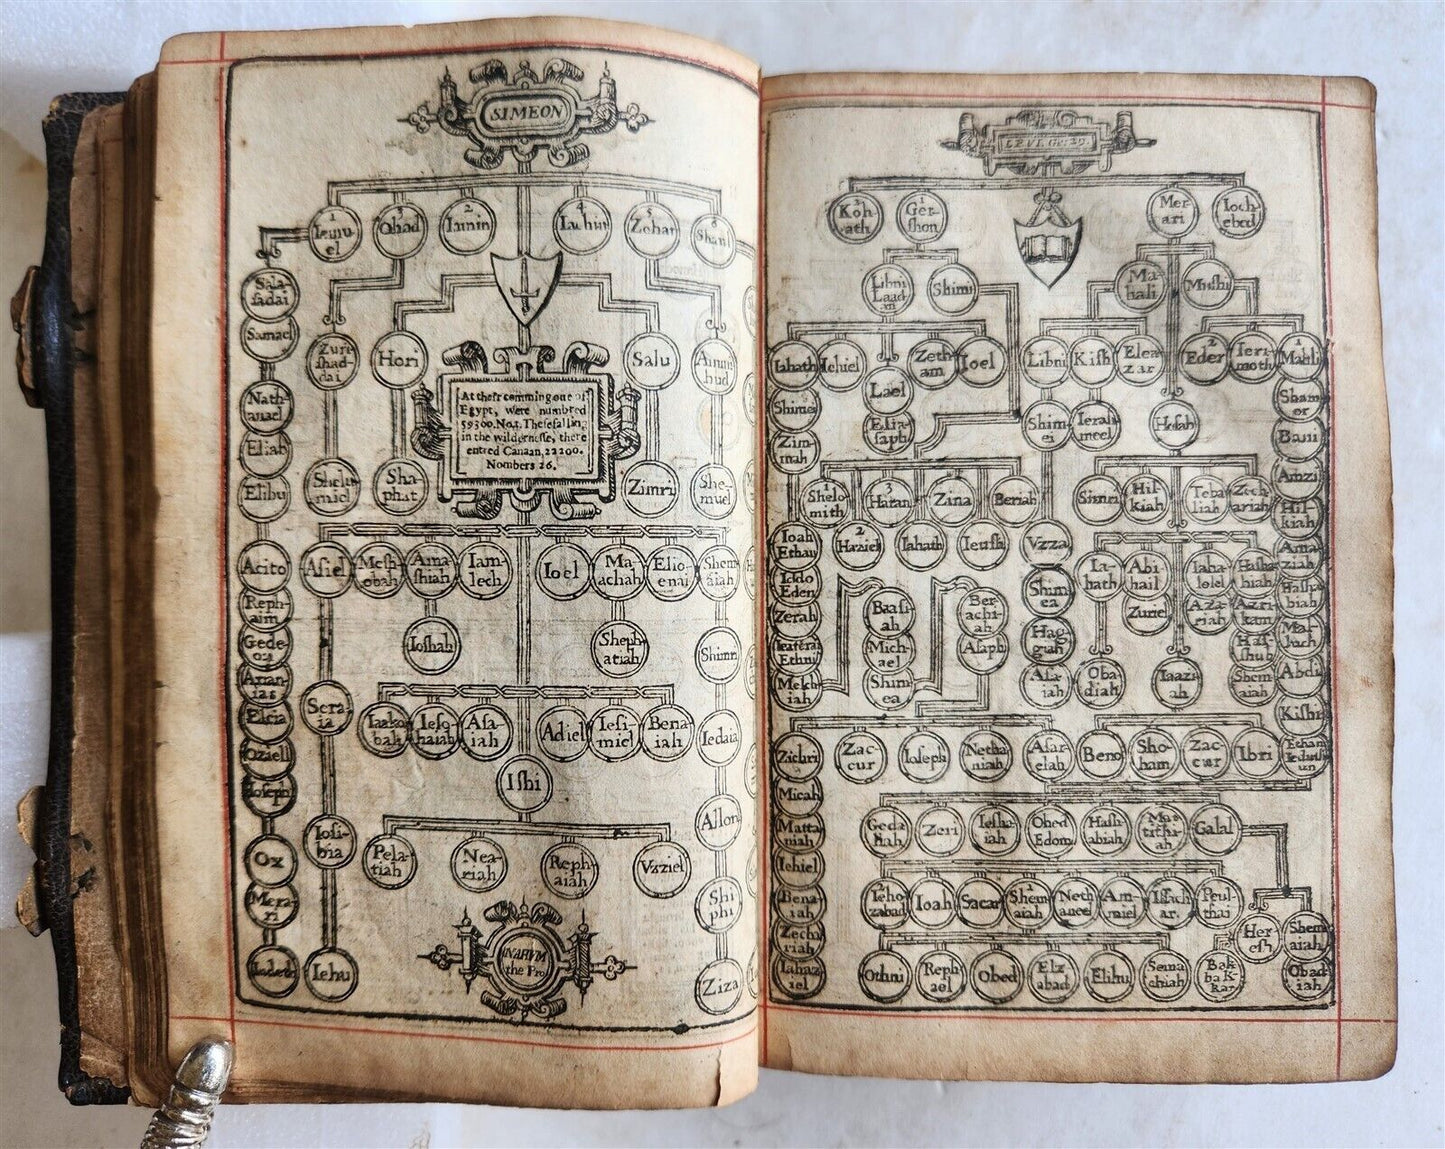 SIMEON
1
Iemu-
el
3
Ohad
2
Iamin
4
Iachin
5
Zohar
6
Shaul
Sala-
sadai
Samael
Nath-
anael
Eliab
Elihu
Acito
Reph-
aim
Gede-
on
Anan-
ias
Elcia
Oziell
Ioseph
Ox
Mera-
ri
Iudeth
Zuri-
shad-
dai
Hori
Salu
Ammi-
hud
At their comming out of
Egypt, were numbred
59300. No.1. These falling
in the wildernesse, there
entred Canaan, 22200.
Nombers 26.
Shelu-
miel
Sha-
phat
Zimri
She-
muel
Asiel
Mesh-
obah
Ama-
shiah
Iam-
lech
Ioel
Ma-
achah
Elio-
enai
Shem-
aiah
Ioshah
Sheph-
atiah
Shimri
Sera-
ia
Iaako-
bah
Ieso-
haiah
Asa-
iah
Adiel
Iesi-
miel
Bena-
iah
Iedaia
Ishi
Iosi-
bia
Allon
Pela-
tiah
Nea-
riah
Reph-
aiah
Vzziel
Shi
phi
Iehu
the Pro
Ziza
LEVI. Ge: 29.
2
Koh-
ath
1
Ger-
shon
Mer-
ari
Ioch-
ebed
Libni
Laad-
an
Shimi
Ma-
hali
Mushi
Iahath
Iehiel
Zeth-
am
Ioel
Libni
Kish
Elea-
zar
2
Eder
Ieri-
moth
1
Mahli
Lael
Shimei
Elia-
saph
Shim-
ei
Ierah-
meel
Hosah
Sham-
er
Bani
Zim-
mah
Amzi
1
Shelo-
mith
3
Haran
Zina
Beriah
Simri
Hil-
kiah
Teba-
liah
Zech-
ariah
Hil-
kiah
Ioah
Ethan
2
Haziel
Iahath
Ieush
Vzza
Ama-
ziah
Iddo
Eden
Shim-
ea
Ia-
hath
Abi-
hail
Iaha-
lolel
Hasha-
biah
Hasha-
biah
Zerah
Baasi-
ah
Ber-
achi-
ah
Zuriel
Aza-
riah
Azri-
kam
Ieaterai
Ethni
Mich-
ael
Asaph
Hag-
giah
Has-
shub
Mal-
luch
Melch-
iah
Shim-
ea
Asa-
iah
Oba-
diah
Iaazi-
ah
Shem-
aiah
Abdi
Kishi
Zichri
Zac-
cur
Ioseph
Netha-
niah
Asar-
elah
Beno
Sho-
ham
Zac-
cur
Ibri
Ethan
Ieduth-
un
Micah
Matta-
niah
Geda-
liah
Zeri
Iesha-
iah
Obed
Edom
Hasha-
biah
Mat-
tithi-
ah
Galal
Iehiel
Bena-
iah
2
Ieho-
zabad
Ioah
Sacar
1
Shem-
aiah
Neth-
aneel
Am-
miel
Issach-
ar.
Peul-
thai
Her-
esh
Shem-
aiah
Zecha-
riah
Iahaz-
iel
Othni
Reph-
ael
Obed
Elz-
abad
Elihu
Sema-
chiah
Bak-
bak-
kar
Obad-
iah